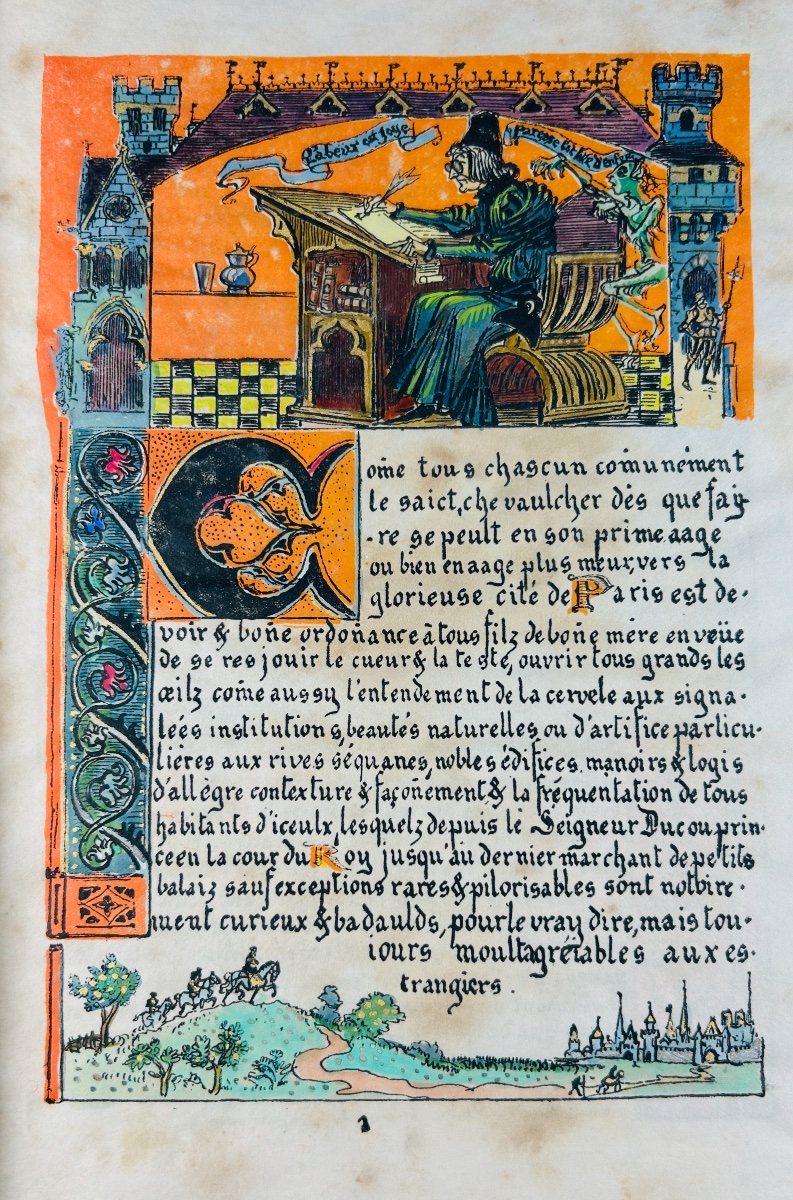 Labeur est joye
Paresse est
Come tous chascun comunément
le saict, chevaulcher dès que fay-
-re se peult en son prime aage
ou bien en aage plus meur, vers la
glorieuse cité de Paris est de-
voir & bone ordonance à tous filz de bone mère en veüe
de se resjouir le cueur & la teste, ouvrir tous grands les
œilz come aussy l'entendement de la cervele aux signa-
lées institutions, beautés naturelles ou d'artifice particu-
lières aux rives séquanes, nobles édifices, manoirs & logis
d'allègre contexture & façonement & la fréquentation de tous
habitants d'iceulx, lesquelz depuis le Seigneur Duc ou prin-
ce en la cour du Roy jusqu'au dernier marchant de petits
balaiz sauf exceptions rares & pilorisables sont notoire-
ment curieux & badaulds, pour le vray dire, mais tou-
iours moult agréiables aux es-
trangiers.
1